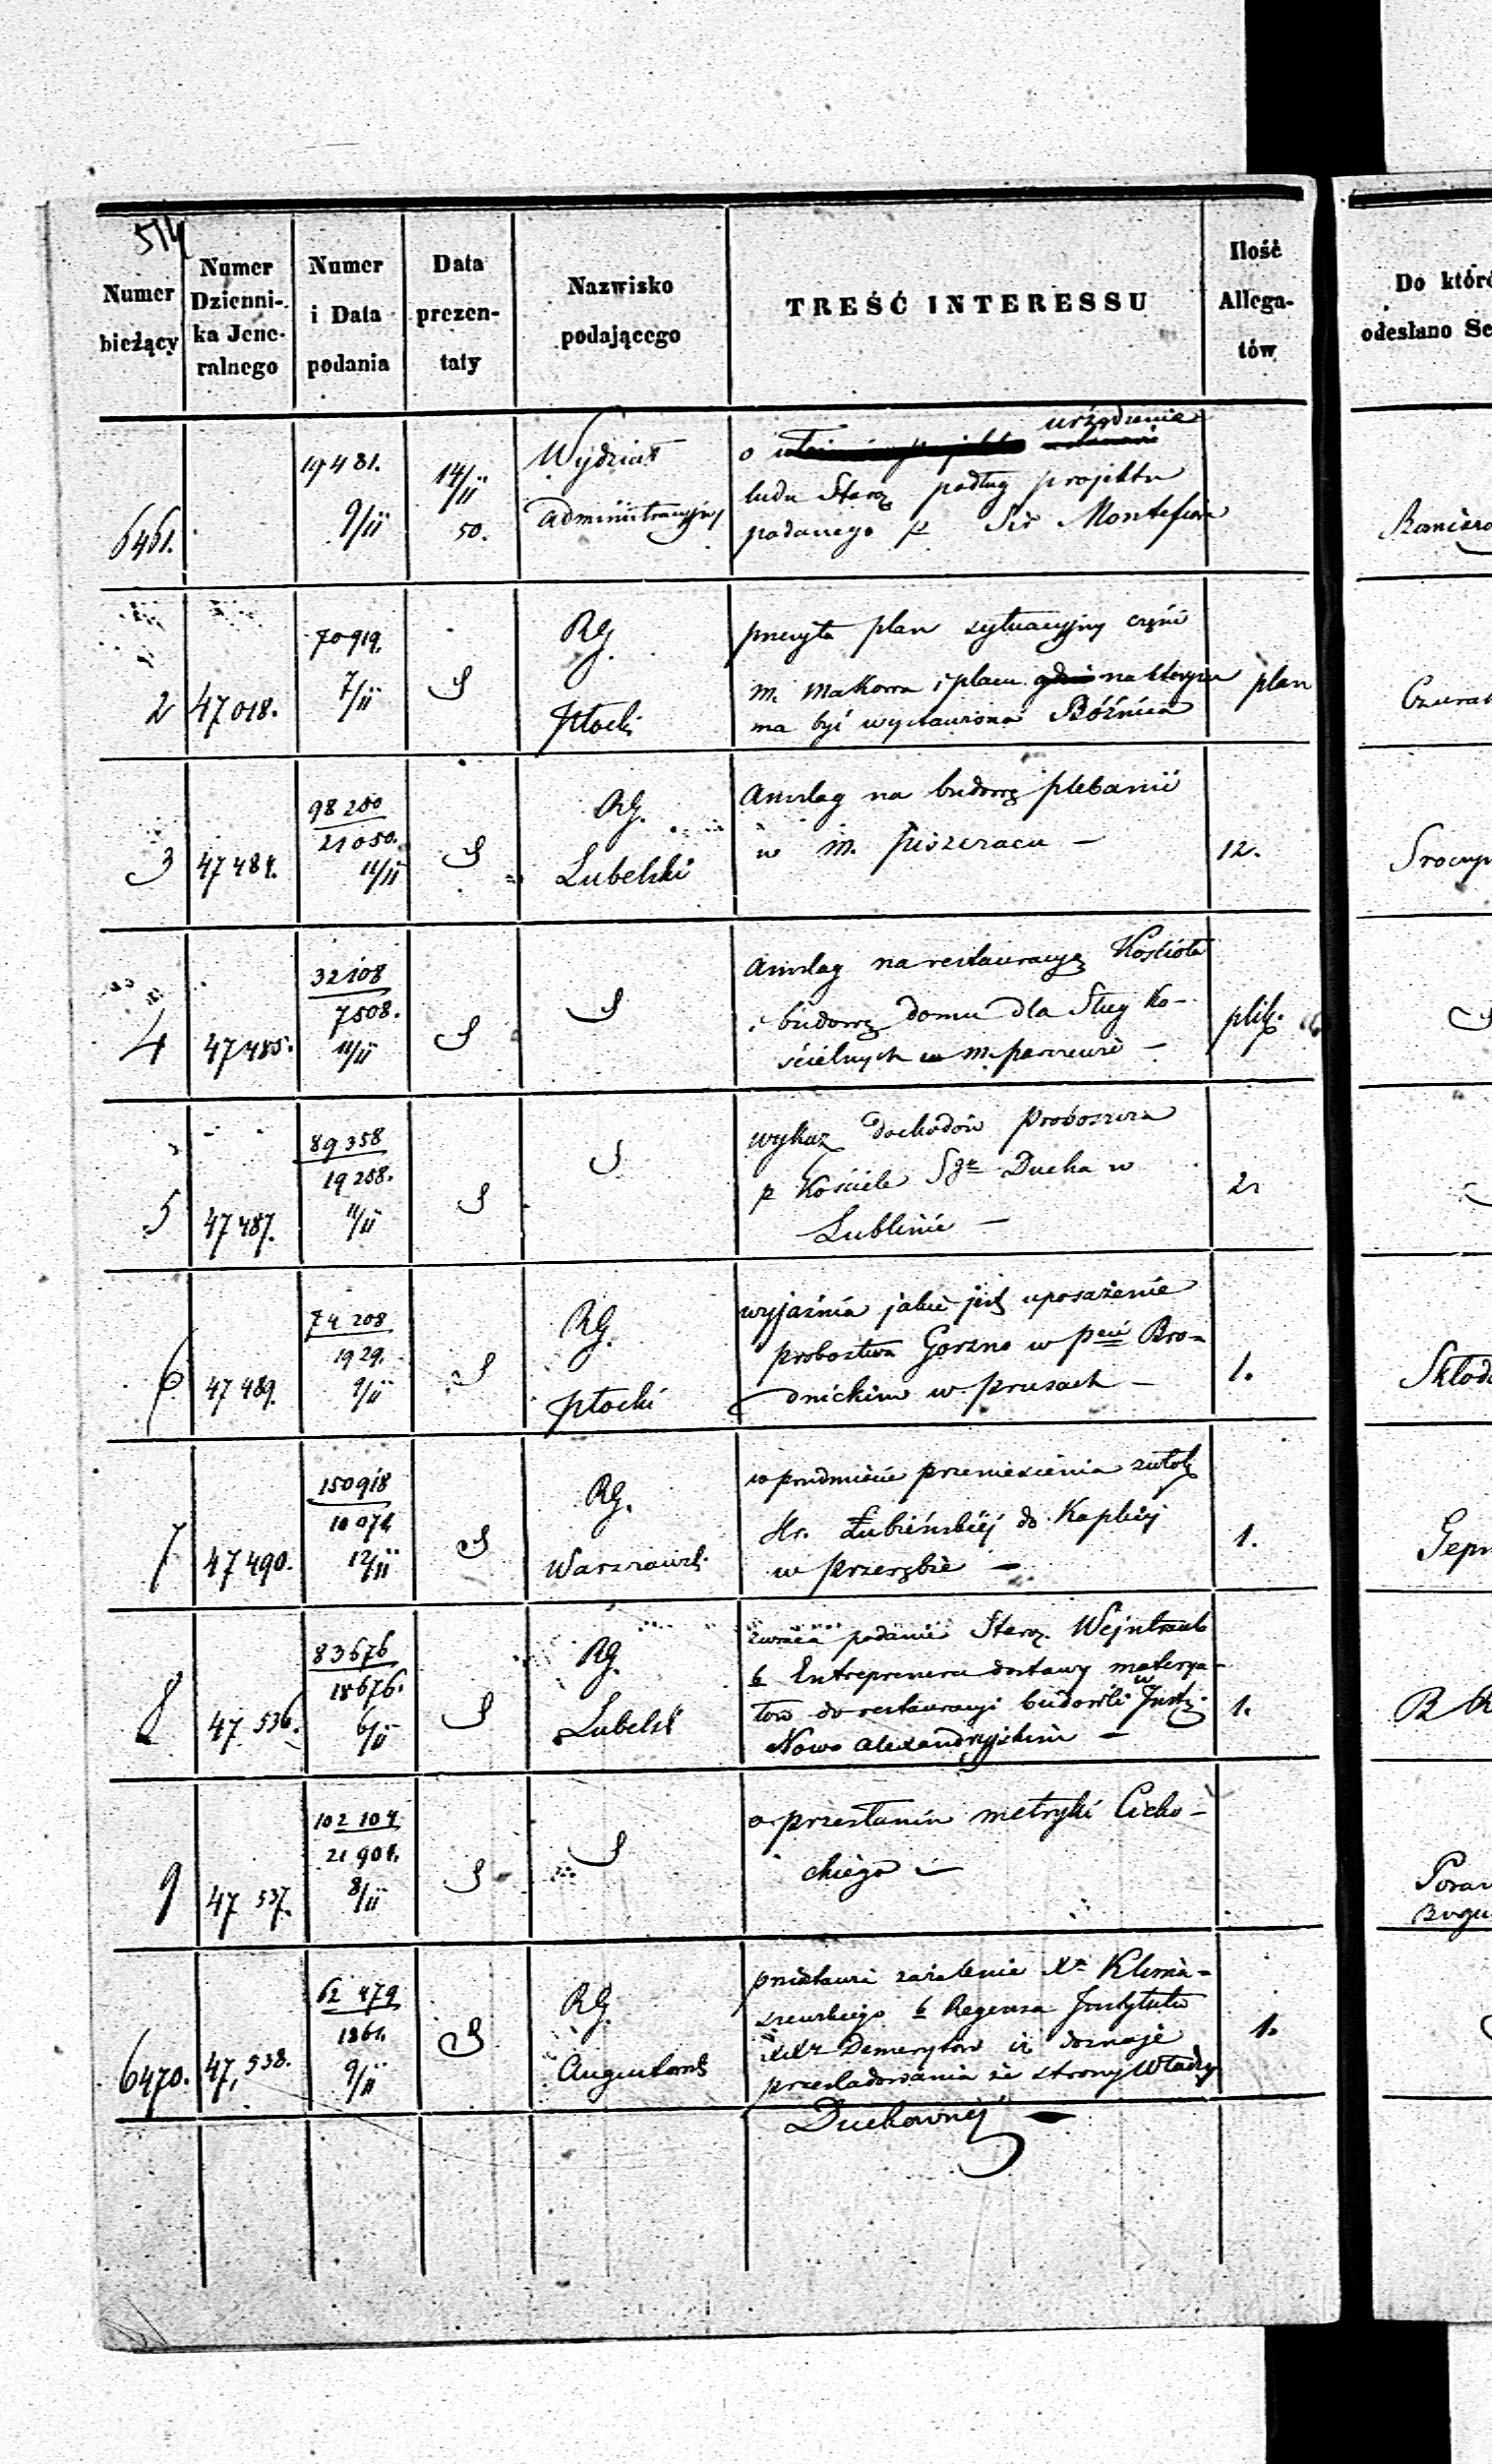 514
Numer bieżący
Numer Dzienni-ka Jene-ralnego
Numer i Data podania
Data prezen-taty
Nazwisko podającego
TREŚĆ INTERESSU
Ilość Allega-tów
Do któr
odesłano Se
6461.
19481. 9/11
14/11 50.
Wydział
Administracyjny
o urządzenie
ludu Staroz. podług projektu
podanego p Sir Montefiore
2
47018.
70919.
7/11
RG.
Płocki
przesyła plan sytuacyjny części
m. Makowa i placu na którym
ma być wystawiona Bóżnica
plan
3
47484.
98250
21050.
11/11
RG.
Lubelski
Anszlag na budowę plebanii
w m. Piszczacu —
12.
4
47485.
32108
7508.
11/11
Anszlag na restauracyą Kościoła
i budowę domu dla Sług Ko-
ścielnych w m.
plik.
5
47487.
89358
19258.
11/11
wykaz dochodów Proboszcza
p Kościele Sgo Ducha w
Lublinie —
2
6
47489.
74208
1929.
9/11
RG.
Płocki
wyjaśnia jakie jest uposażenie
probostwa Gorzno w pcie Bro-
dnickim w Prusach —
1.
7
47490.
150918
10074
12/11
RG.
Warszawsk.
w przedmiocie przeniesienia zwłok
Hr. Łubieńskiej do Kaplicy
w
1.
8
47 536.
83676
18676.
6/11
RG.
Lubelsk
zwraca podanie Staroz. Wejntraub
b Entreprenera dostawy materya-
łow do restauracyi budowli w Insty.
Nowo Alexandryjskim —
1.
9
47 537.
102 104
21901.
8/11
o przesłanie metryki Cicho-
ckiego —
6470.
47,538.
62 479
1861.
9/11
RG.
Augustows
przedstawia zażalenie Xa Klima-
szewskiego b Regensa Instytutu
XXy Demerytów iż doznaje
prześladowania ze strony Władzy
Duchownej —
1.